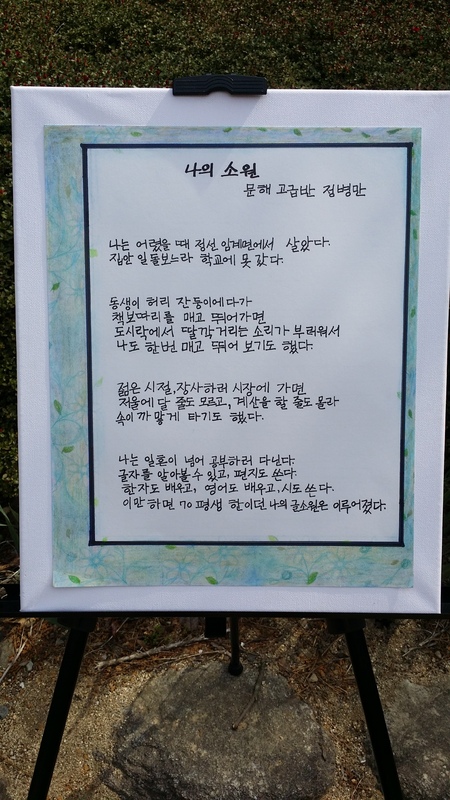 나의 소원
문해 고급반 정병만
나는 어렸을 때 정선 임계면에서 살았다.
집안 일 돌보느라 학교에 못 갔다.
동생이 허리 잔등이에다가
책보따리를 매고 뛰어가면
도시락에서 딸깍거리는 소리가 부러워서
나도 한번 매고 뛰어 보기도 했다.
젊은 시절, 장사하러 시장에 가면
저울에 달 줄도 모르고, 계산을 할 줄도 몰라
속이 까맣게 타기도 했다.
나는 일흔이 넘어 공부하러 다닌다.
글자를 알아볼 수 있고, 편지도 쓴다.
한자도 배우고, 영어도 배우고, 시도 쓴다.
이만 하면 70 평생 한이던 나의 글소원은 이루어졌다.